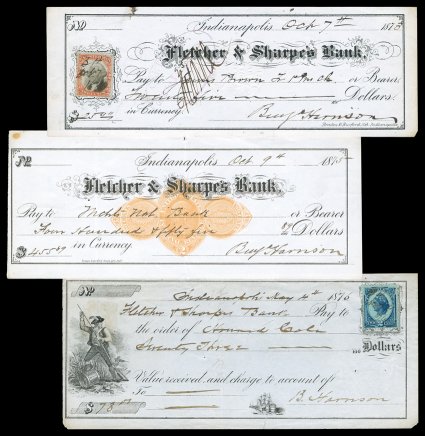 No.
Indianapolis Oct 7th 1875
Fletcher & Sharpe's Bank,
Pay to Brown or Bearer
Twenty five Dollars
in Currency.
$25.00
Benj Harrison
No.
Indianapolis, Oct. 9th 1875
Fletcher & Sharpe's Bank,
Pay to Mchts Nat. Bank or Bearer
Four Hundred & fifty five Dollars
in Currency.
$455
Benj Harrison
No.
Indianapolis May 4th 1876
Fletcher & Sharpes Bank Pay to
the order of Howard Cole
Seventy Three Dollars
Value received and charge to account of
To
$73
B. Harrison